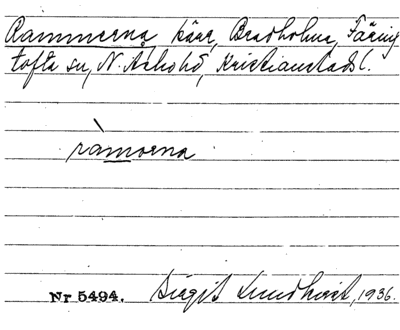 Rammerna kärr, Bradholma, Färing
tofta sn, N. Åsbohd, Kristianstads l.
ràmmerna
Nr 5494. Birgit Lundkvist, 1936.